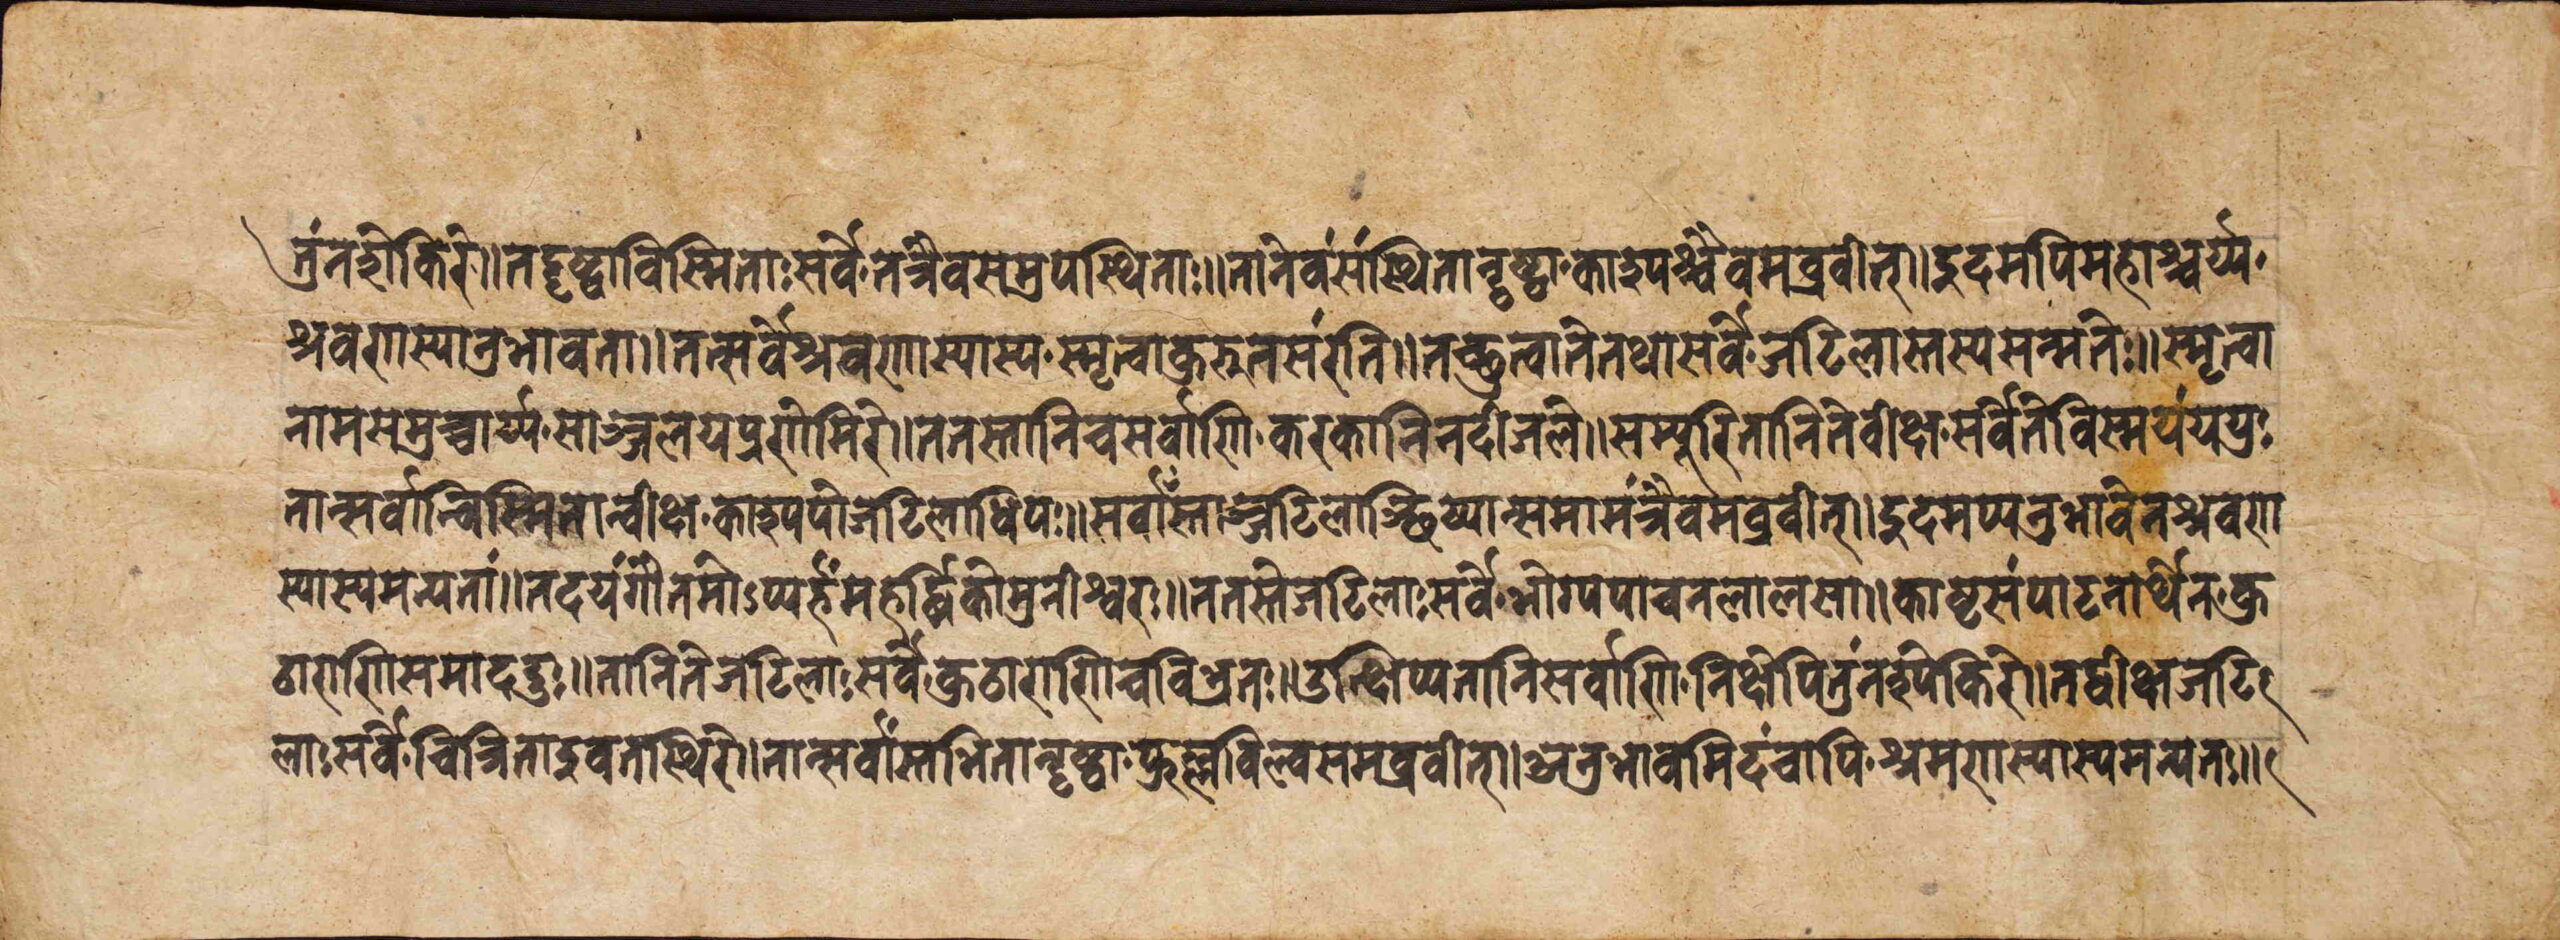 तुंनशेकिरे॥तद्दृष्ट्वाविस्मिताःसर्वे॰तत्रैवसमुपस्थिताः॥तानेवंसंस्थितान्दृष्ट्वा॰काश्यपश्चैवमब्रवीत्॥इदमपिमहाश्चर्य्य॰
श्रवणस्यानुभावता॥तत्सर्वेश्रवणस्यास्य॰स्मृत्वाकुरुतसंरतिं॥तच्छ्रुत्वातेतथासर्वे॰जटिलास्तस्यसन्मतेः॥स्मृत्वा
नामसमुच्चार्य्य॰साञ्जलयप्रणेमिरे॥ततस्तानिचसर्वाणि॰करकानिनदीजले॥सम्पुरितानितेवीक्ष॰सर्वेतेविस्मयंययुः
तान्सर्वान्विस्मितान्वीक्ष॰काश्यपोजटिलाधिपः॥सर्वांस्ताञ्जटिलाञ्छिष्यान्समामंत्रैवमब्रवीत्॥इदमप्यनुभावेनश्रवण
स्यास्यमन्यतां॥तदयंगौतमोऽप्यर्हंमहर्द्धिकोमुनीश्वरः॥ततस्तेजटिलाःसर्वे॰भोग्यपाचनलालसा॥काष्ठसंपाटनार्थेन॰कु
ठाराणिसमाददुः॥तानितेजटिलाःसर्वे॰कुठाराणिचविभ्रतः॥उत्क्षिप्यतानिसर्वाणि॰निक्षेपितुंनशेकिरे॥तद्वीक्ष्यजटि
लाःसर्वे॰चित्रिताइवतस्थिरे॥तान्सर्वांस्तम्भितान्दृष्ट्वा॰फुरुल्लविल्वसमब्रवीत्॥अनुभावमिदंचापि॰श्रमणस्यास्यमन्यतः॥